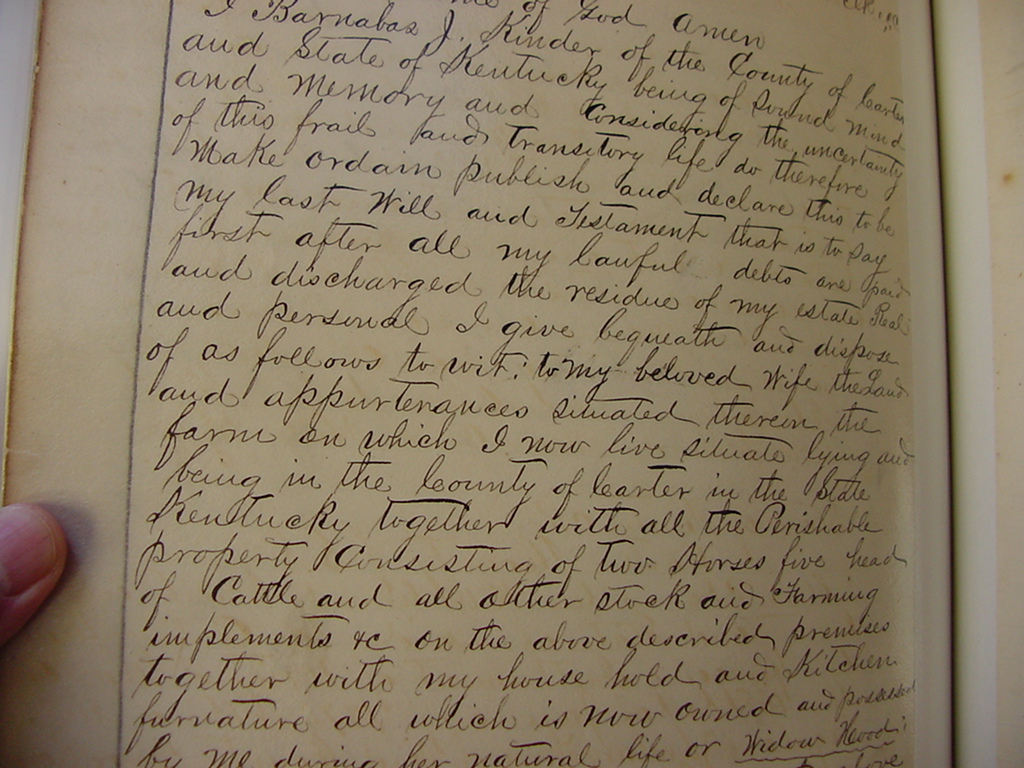 of God Amen
I Barnabas J. Kinder of the County of Carter
and State of Kentucky being of Sound mind
and Memory and Considering the uncertainty
of this frail and transitory life do therefore
Make ordain publish and declare this to be
my last Will and Testament that is to Say
first after all my lawful debts are paid
and discharged the residue of my estate Real
and personal I give bequeath and dispose
of as follows to wit: to my beloved Wife the Land
and appurtenances situated therein the
farm on which I now live situate lying and
being in the County of Carter in the State
Kentucky together with all the Perishable
property Consisting of two Horses five head
of Cattle and all other stock and Farming
implements &c on the above described premises
together with my house hold and Kitchen
furnature all which is now owned and possessed
by me during her natural life or Widow Hood
above